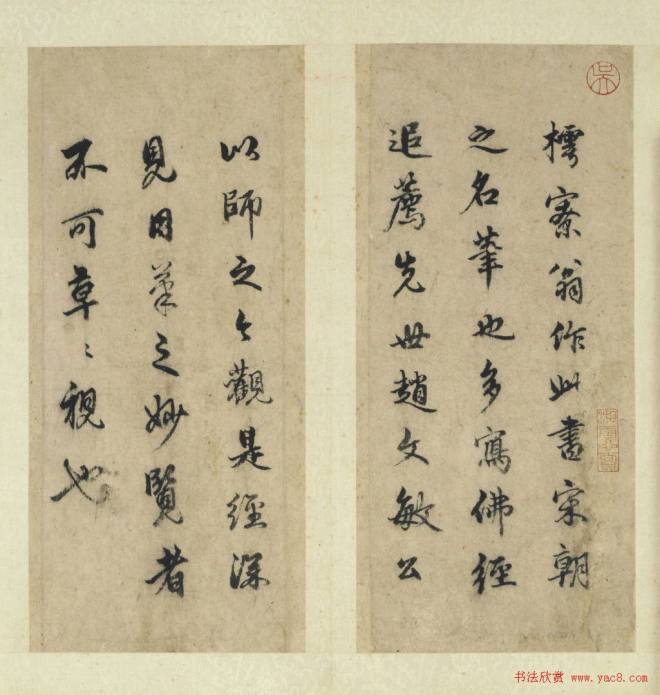 樗寮翁作此書宋朝
之名筆也多寫佛經
追薦先世趙文敏公
以師之今觀是經深
見用筆之妙覽者
不可草〻視也
書法欣赏 www.yac8.com